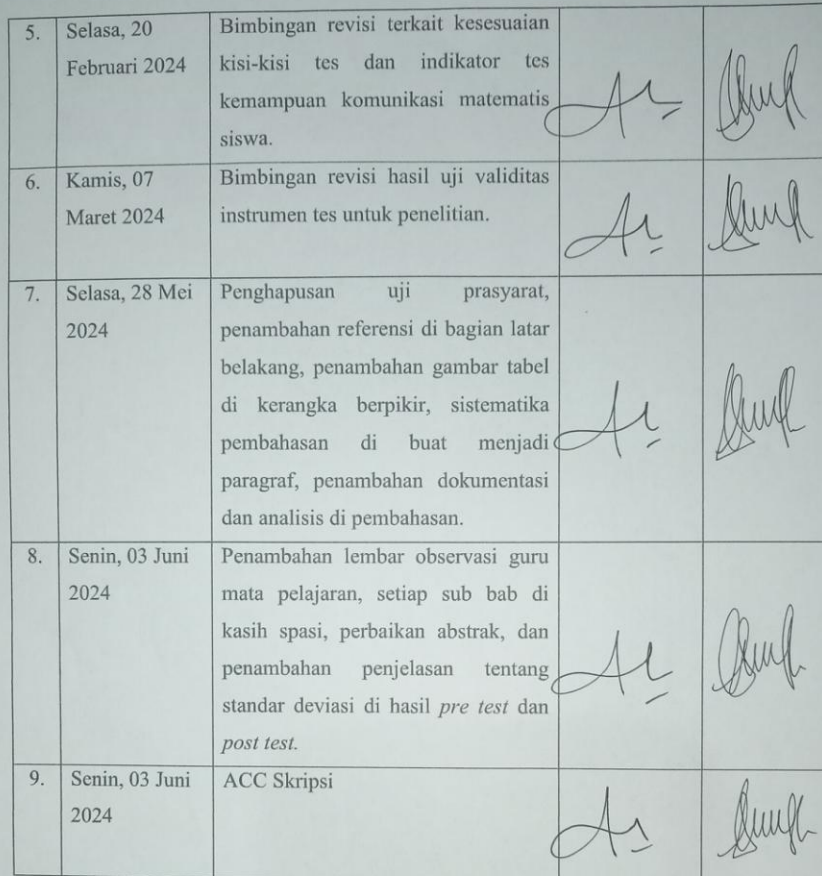 5. Selasa, 20 Bimbingan revisi terkait kesesuaian
Februari 2024 kisi-kisi tes dan indikator tes
kemampuan komunikasi matematis
siswa.
6. Kamis, 07 Bimbingan revisi hasil uji validitas
Maret 2024 instrumen tes untuk penelitian.
7. Selasa, 28 Mei Penghapusan uji prasyarat,
2024 penambahan referensi di bagian latar
belakang, penambahan gambar tabel
di kerangka berpikir, sistematika
pembahasan di buat menjadi
paragraf, penambahan dokumentasi
dan analisis di pembahasan.
8. Senin, 03 Juni Penambahan lembar observasi guru
2024 mata pelajaran, setiap sub bab di
kasih spasi, perbaikan abstrak, dan
penambahan penjelasan tentang
standar deviasi di hasil pre test dan
post test.
9. Senin, 03 Juni ACC Skripsi
2024